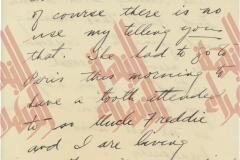 of course there is no
use my telling you
that. She had to go to
Paris this morning to
have a tooth attended
to so Uncle Freddie
and I are living